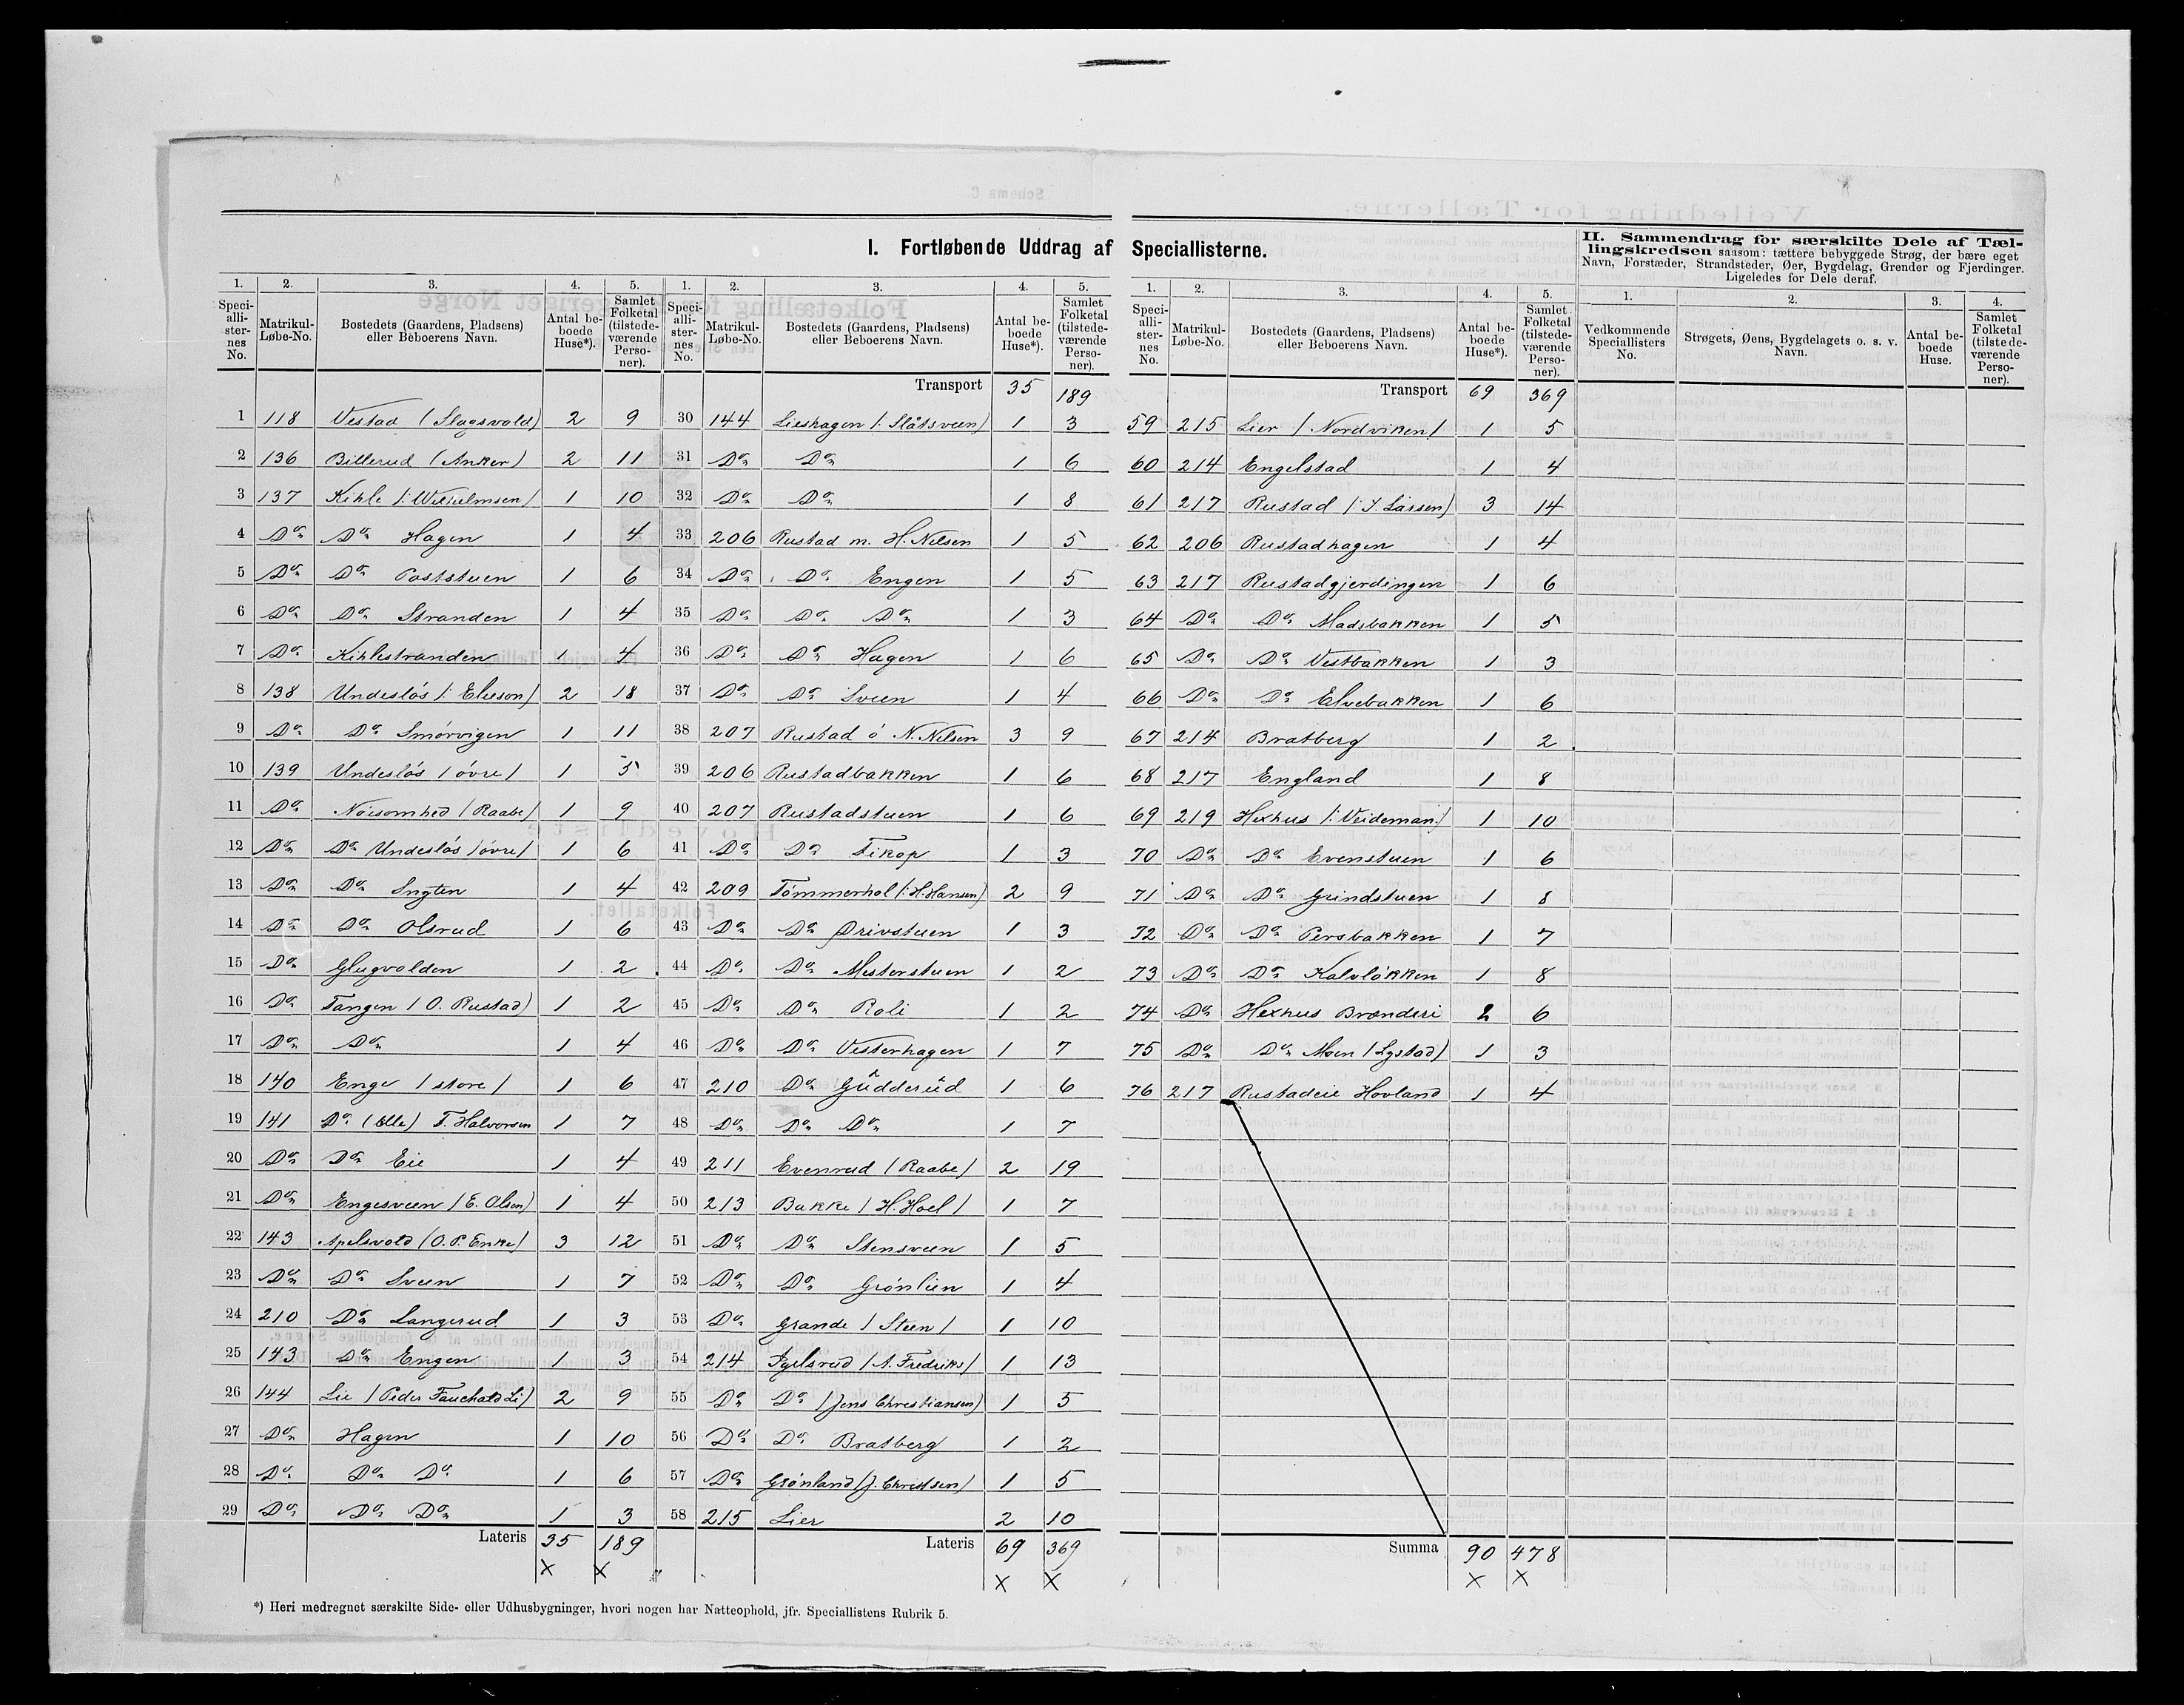 I. Fortløbende Uddrag af Speciallisterne.
II. Sammendrag for særskilte Dele af Tællingskredsen saasom: tættere bebyggede Strøg, der bære eget Navn, Forstæder, Strandsteder, Øer, Bygdelag, Grender og Fjerdinger. Ligeledes for Dele deraf.
1. 2. 3. 4. 5.
Speciallisternes No. Matrikul-Løbe-No. Bostedets (Gaardens, Pladsens) eller Beboerens Navn. Antal beboede Huse*). Samlet Folketal (tilstedeværende Personer).
1 118 Vestad (Slagsvold) 2 9
2 136 Billerud (Anker) 2 11
3 137 Kihle /: Wilhelmsen/ 1 10
4 Do Do Hagen 1 4
5 Do Do Poststuen 1 6
6 Do Do Stranden 1 4
7 Do Kihlestranden 1 4
8 138 Undesløs /: Elieson/ 2 18
9 Do Do Smørvigen 1 11
10 139 Undesløs /øvre/ 1 5
11 Do Nøisomhed /Raabe/ 1 9
12 Do Do Undesløs /øvre/ 1 6
13 Do Do 1 4
14 Do Do Olsrud 1 6
15 Do Glugvolden 1 2
16 Do Tangen / O. Rustad) 1 2
17 Do Do 1 4
18 140 Enge /store/ 1 6
19 141 Do (lille) T. Halvorsen 1 7
20 Do Do Eie 1 4
21 Do Engesveen /E. Olsen) 1 4
22 143 Apelsvold (O. P. Enke) 3 12
23 Do Do Sveen 1 7
24 210 Do Langerud 1 3
25 143 Do Engen 1 3
26 144 Lie / Peder Fauchald Li) 2 9
27 Do Hagen 1 10
28 Do Do Do 1 6
29 Do Do Do 1 3
Lateris 35 189
1. 2. 3. 4. 5.
Speciallisternes No. Matrikul-Løbe-No. Bostedets (Gaardens, Pladsens) eller Beboerens Navn. Antal beboede Huse*). Samlet Folketal (tilstedeværende Personer).
Transport 35 189
30 144 Lieshagen /: Slåtsveen) 1 3
31 Do Do 1 6
32 Do Do 1 8
33 206 Rustad m. H. Nilsen 1 5
34 Do Do Engen 1 5
35 Do Do Do 1 3
36 Do Do Hagen 1 6
37 Do Do Sveen 1 4
38 207 Rustad ö N. Nilsen 3 9
39 206 Rustadbakken 1 6
40 207 Rustadstuen 1 6
41 Do Do Fikop 1 3
42 209 Tømmerhol (: H. Hansen) 2 9
43 Do Do Drivstuen 1 3
44 Do Do Mesterstuen 1 2
45 Do Do Roli 1 2
46 Do Do Vesterhagen 1 7
47 210 Do Gudderud 1 6
48 Do Do Do 1 7
49 211 Evenrud /Raabe/ 2 19
50 213 Bakke / H. Hoel / 1 7
51 Do Do Stensveen 1 5
52 Do Do Grønlien 1 4
53 Do Grande / Steen / 1 10
54 214 /A. Fredriks/ 1 13
55 Do Do /Jens Christiansen) 1 5
56 Do Do Bratberg 1 2
57 Do Grønland /J. Christsen/ 1 5
58 215 Lier 2 10
Lateris 69 369
1. 2. 3. 4. 5.
Speciallisternes No. Matrikul-Løbe-No. Bostedets (Gaardens, Pladsens) eller Beboerens Navn. Antal beboede Huse*). Samlet Folketal (tilstedeværende Personer).
Transport 69 369
59 215 Lier / Nordviken/ 1 5
60 214 Engelstad 1 4
61 217 Rustad / J. Larsen) 3 14
62 206 Rustadhagen 1 4
63 217 Rustadgjerdingen 1 6
64 Do Do Madsbakken 1 5
65 Do Do Vestbakken 1 3
66 Do Do Elvebakken 1 6
67 214 Bratberg 1 2
68 217 England 1 8
69 219 Hexhus /: Veideman:/ 1 10
70 Do Do Evenstuen 1 6
71 Do Do Grindstuen 1 8
72 Do Do Persbakken 1 7
73 Do Do Kalvløkken 1 8
74 Do Hexhus Brænderi 2 6
75 Do Do Moen / Lystad) 1 3
76 217 Rustadeie Hovland 1 4
Summa 90 478
1. 2. 3. 4.
Vedkommende Speciallisters No. Strøgets, Øens, Bygdelagets o. s. v. Navn. Antal beboede Huse. Samlet Folketal (tilstedeværende Personer).
*) Heri medregnet særskilte Side- eller Udhusbygninger, hvori nogen har Natteophold, jfr. Speciallistens Rubrik 5.